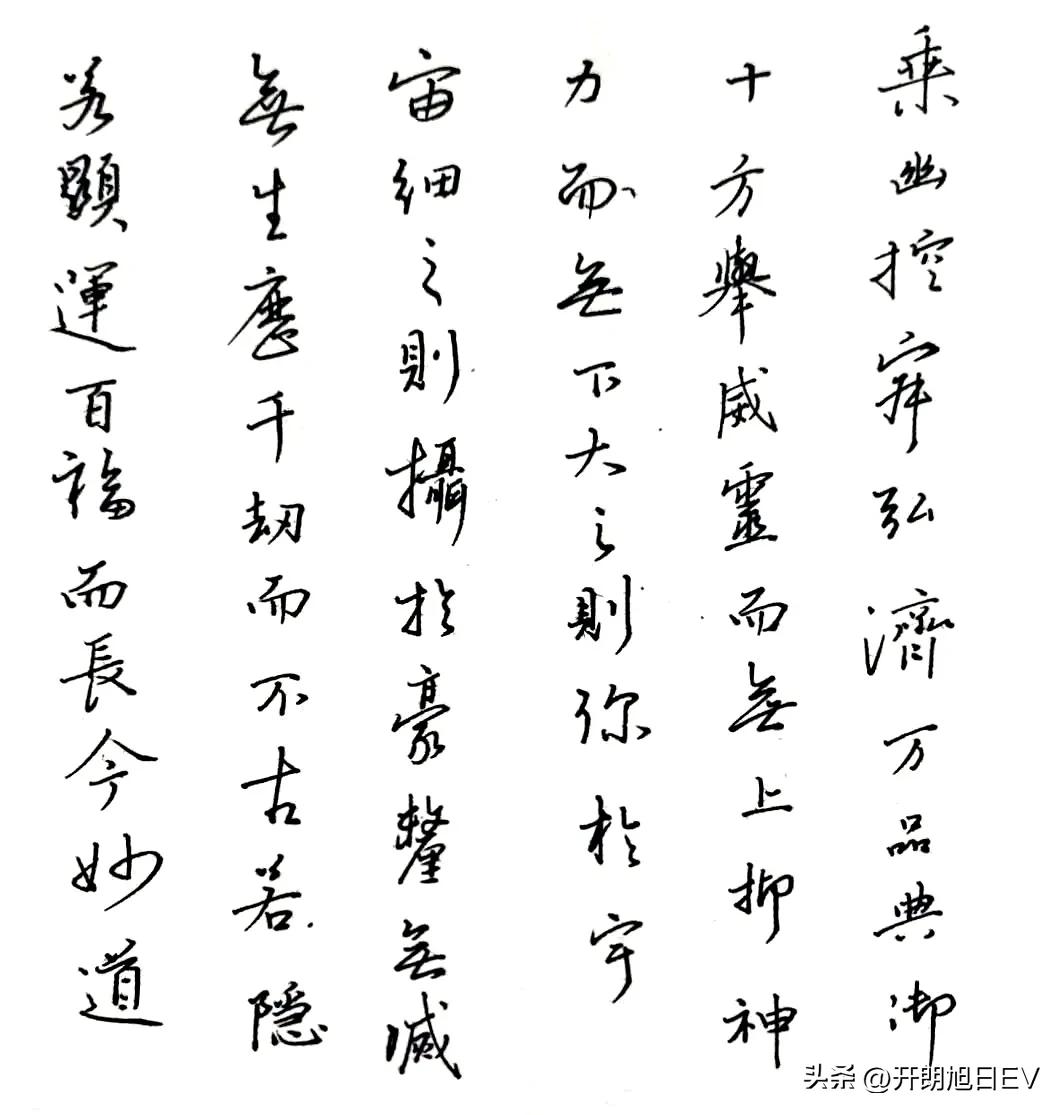 乗幽控寂弘濟万品典御
十方舉威靈而無上抑神
力而無下大之則弥於宇
宙細之則攝於豪釐無滅
無生歷千劫而不古若隱
若顯運百福而長今妙道
头条 @开朗旭日EV